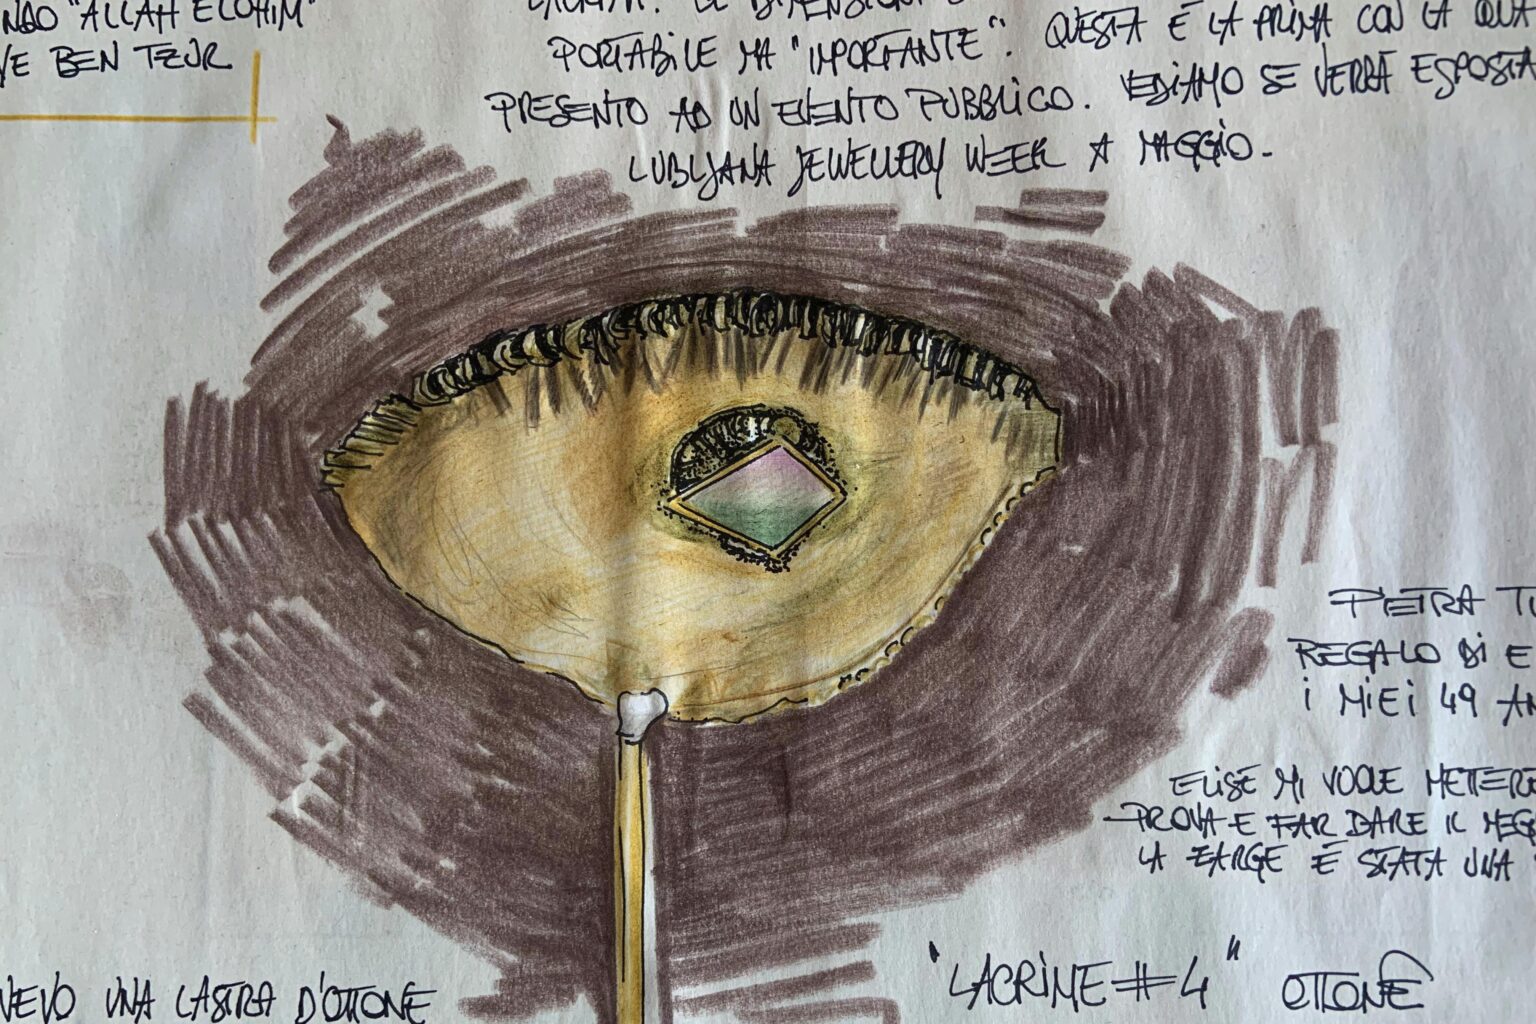 "ALLAH ELOHIM"
VE BEN TZUR
PORTABILE MA "IMPORTANTE". QUESTA È LA PRIMA CON LA QUA
PRESENTO AD UN EVENTO PUBBLICO. VEDIAMO SE VERRÀ ESPOSTA
LUBLJANA JEWELLERY WEEK A MAGGIO.
PIETRA
REGALO DI E
I MIEI 49 AN
ELISE MI VOLLE METTERE
PROVA E FAR DARE IL MEG
LA È STATA UNA
"LACRIME #4" OTTONE
VEVO UNA LASTRA D'OTTONE